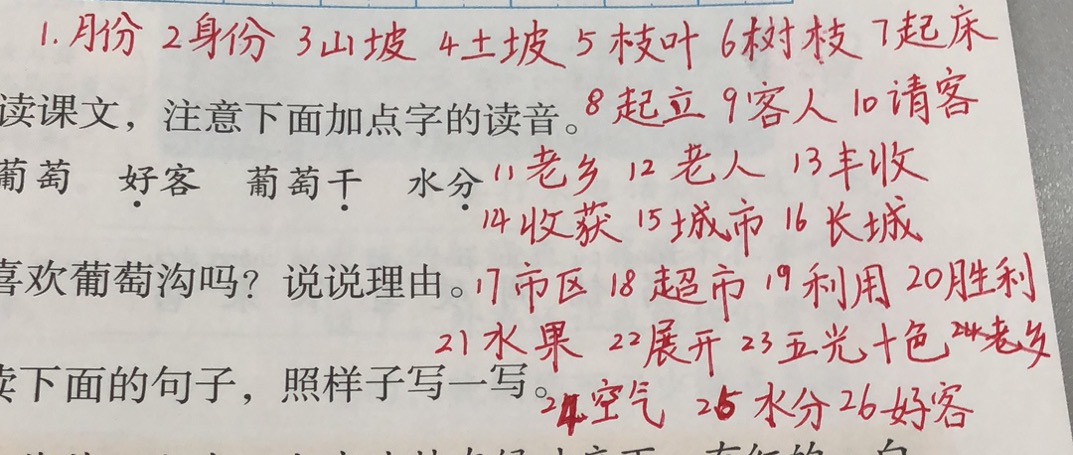 1.月份 2身份 3山坡 4土坡 5枝叶 6树枝 7起床
读课文，注意下面加点字的读音。8起立 9客人 10请客
葡萄 好客 葡萄干 水分 11老乡 12老人 13丰收
14收获 15城市 16长城
喜欢葡萄沟吗？说说理由。17市区 18超市 19利用 20胜利
21水果 22展开 23五光十色 24老乡
读下面的句子，照样子写一写。24空气 25水分 26好客